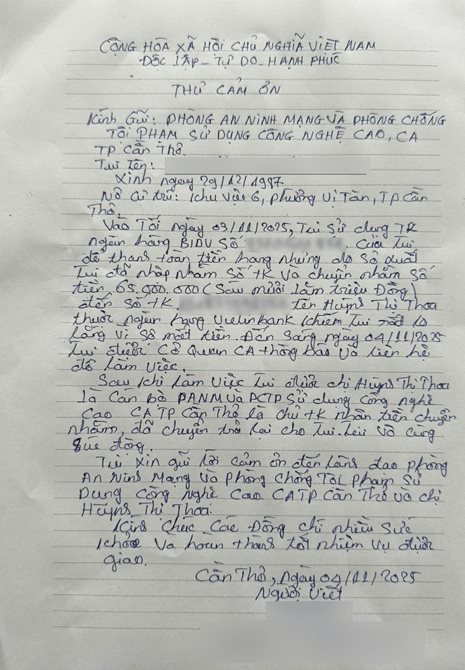 CỘNG HÒA XÃ HỘI CHỦ NGHĨA VIỆT NAM
ĐỘC LẬP - TỰ DO - HẠNH PHÚC
THƯ CẢM ƠN
Kính Gửi: PHÒNG AN NINH MẠNG VÀ PHÒNG CHỐNG
TỘI PHẠM SỬ DỤNG CÔNG NGHỆ CAO, CA
TP CẦN Thơ.
Tui tên:
Xinh ngày 29/12/1987.
Nơi cư trú: Khu Vực 6, phường Vị Tân, TP Cần
Thơ
Vào Tối ngày 03/11/2025, Tui Sử dụng TK
ngân hàng BIDV Số Của Tui
để thanh toán tiền hàng nhưng do Sơ Suất
Tui đã nhập nhầm Số TK Và chuyển nhầm Số
tiền 65.000.000 (Sáu mươi lăm triệu Đồng)
đến Số TK Tên Huỳnh Thị Thoa
thuộc ngân hàng Vietinbank khiếm Tui rất lo
Lắng Vì Sợ mất tiền. Đến Sáng ngày 04/11/2025
Tui được Cơ Quan CA thông báo Và liên hệ
để làm Việc.
Sau khi làm Việc Tui được chị Huỳnh Thị Thoa
là Cán bộ PANM Và PCTP Sử dụng Công nghệ
Cao CA TP Cần Thơ là chủ TK nhận tiền chuyển
nhầm, đã chuyển trả lại cho Tui. Tui Vô Cùng
Xúc động.
Tui Xin gửi lời cảm ơn đến Lãnh đạo phòng
An Ninh Mạng Và Phòng Chống Tội Phạm Sử
Dụng Công Nghệ Cao CATP Cần Thơ Và chị
Huỳnh Thị Thoa.
Kính Chúc Các Đồng chí nhiều Sức
khỏe Và hoàn thành tốt nhiệm Vụ được
giao.
Cần Thơ, Ngày 04/11/2025
Người Viết